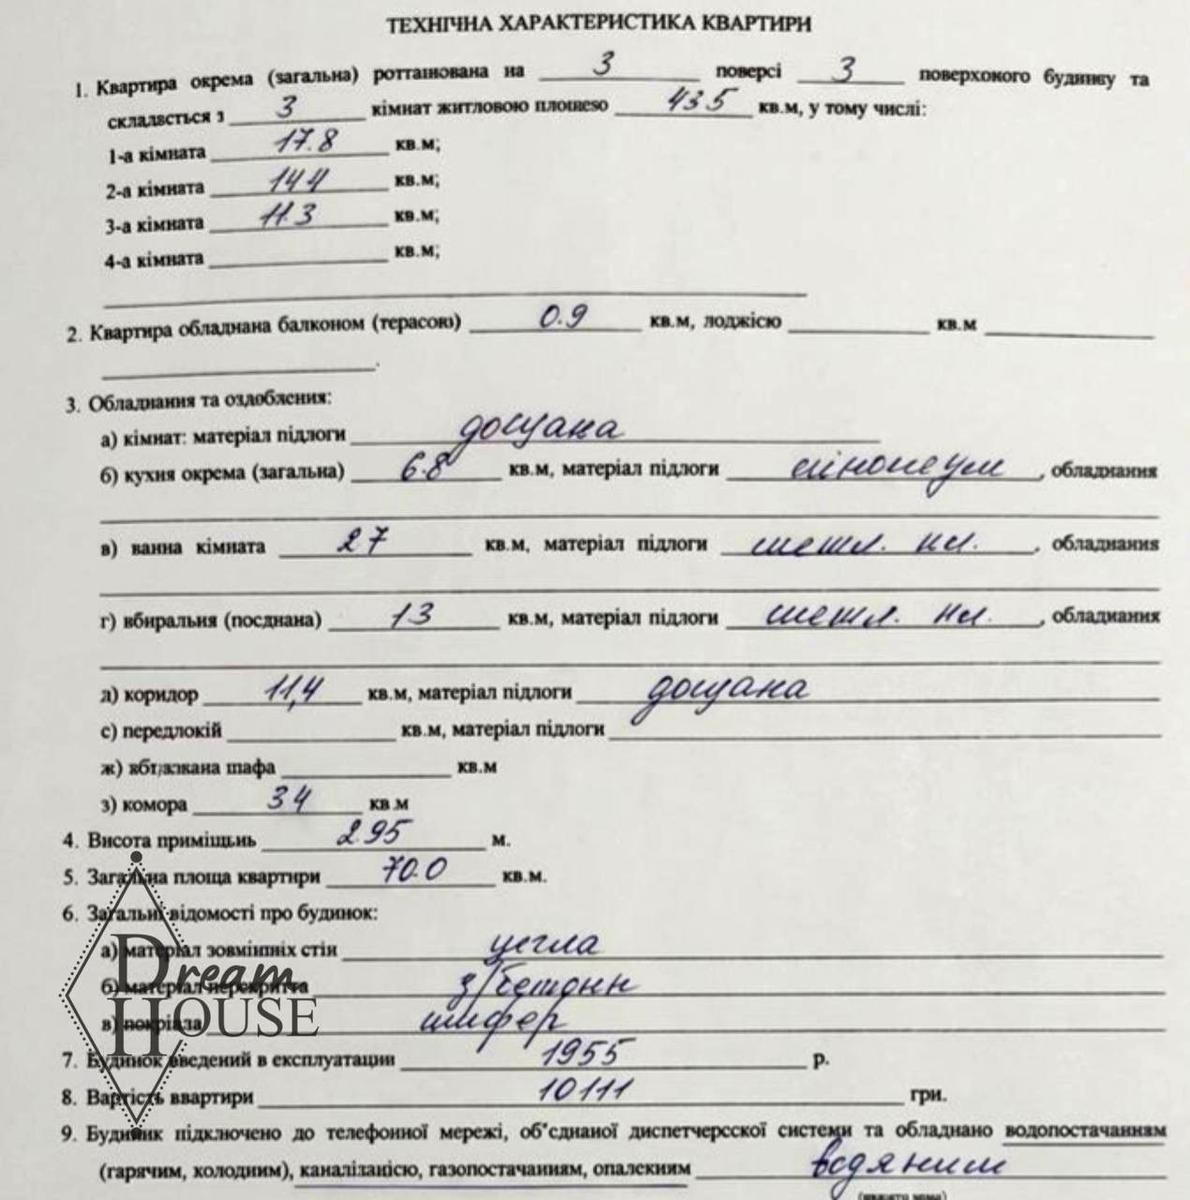 ТЕХНІЧНА ХАРАКТЕРИСТИКА КВАРТИРИ
1. Квартира окрема (загальна) розташована на 3 поверсі 3 поверхового будинку та
складається з 3 кімнат житловою площею 43.5 кв.м, у тому числі:
1-а кімната 17.8 кв.м;
2-а кімната 14.4 кв.м;
3-а кімната 11.3 кв.м;
4-а кімната кв.м;
2. Квартира обладнана балконом (терасою) 0.9 кв.м, лоджією кв.м
3. Обладнання та оздоблення:
а) кімнат: матеріал підлоги дощана
б) кухня окрема (загальна) 6.8 кв.м, матеріал підлоги лінолеум, обладнання
в) ванна кімната 2.7 кв.м, матеріал підлоги метл. пл., обладнання
г) вбиральня (поєднана) 1.3 кв.м, матеріал підлоги метл. пл., обладнання
д) коридор 11,4 кв.м, матеріал підлоги дощана
є) передпокій кв.м, матеріал підлоги
ж) вбудована шафа кв.м
з) комора 3.4 кв.м
4. Висота приміщень 2.95 м.
5. Загальна площа квартири 70.0 кв.м.
6. Загальні відомості про будинок:
а) матеріал зовнішніх стін цегла
б) матеріал перекриття з/бетонн
Dream
в) покрівля шифер
HOUSE
7. Будинок введений в експлуатації 1955 р.
8. Вартість квартири 10111 грн.
9. Будинок підключено до телефонної мережі, об'єднаної диспетчерсскої системи та обладнано водопостачанням
(гарячим, холодним), каналізацією, газопостачанням, опаленням водяним